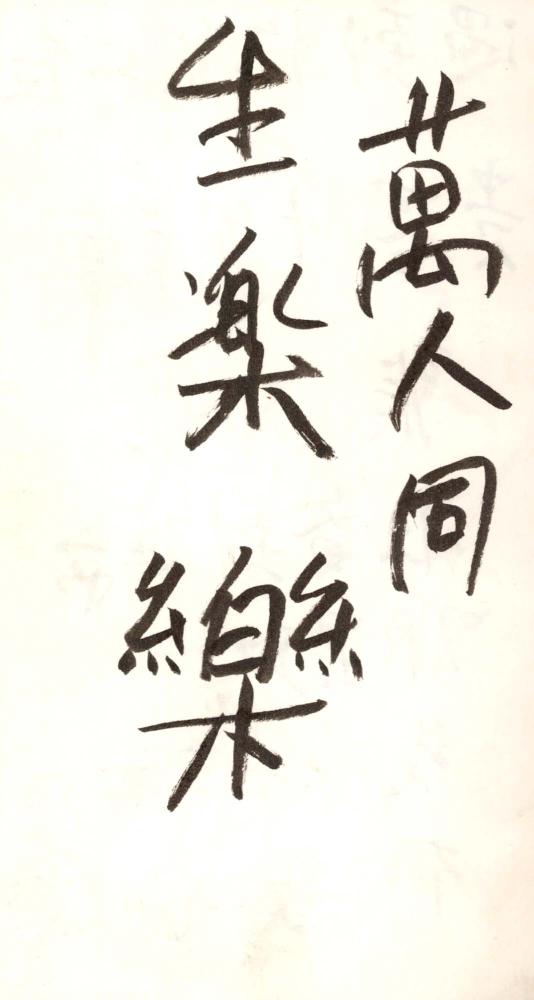 萬人同
生楽樂